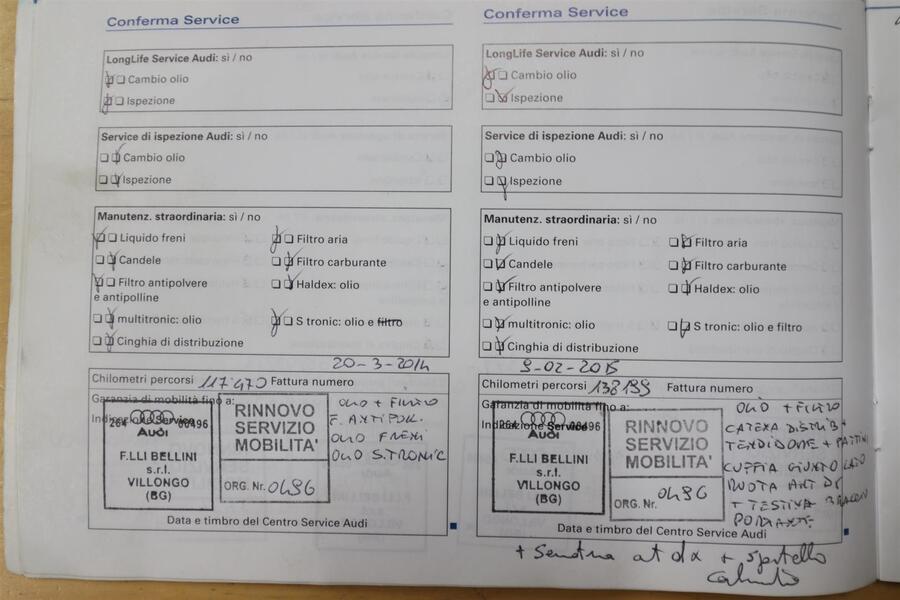 Conferma Service
LongLife Service Audi: sì / no
Cambio olio
Ispezione
Service di ispezione Audi: sì / no
Cambio olio
Ispezione
Manutenz. straordinaria: sì / no
Liquido freni
Filtro aria
Candele
Filtro carburante
Filtro antipolvere
e antipolline
Haldex: olio
multitronic: olio
S tronic: olio e filtro
Cinghia di distribuzione
20-3-2014
Chilometri percorsi 117'470 Fattura numero
Garanzia di mobilità fino a:
Indicazione Service
264 00496
Audi
F.LLI BELLINI
s.r.l.
VILLONGO
(BG)
RINNOVO
SERVIZIO
MOBILITA'
ORG. Nr. 0496
OLIO + FILTRO
F. ANTIPOLL.
OLIO FRENI
OLIO S.TRONIC
Data e timbro del Centro Service Audi
Conferma Service
LongLife Service Audi: sì / no
Cambio olio
Ispezione
Service di ispezione Audi: sì / no
Cambio olio
Ispezione
Manutenz. straordinaria: sì / no
Liquido freni
Filtro aria
Candele
Filtro carburante
Filtro antipolvere
e antipolline
Haldex: olio
multitronic: olio
S tronic: olio e filtro
Cinghia di distribuzione
9-02-2015
Chilometri percorsi 138199 Fattura numero
Garanzia di mobilità fino a:
Indicazione Service
264 00496
Audi
F.LLI BELLINI
s.r.l.
VILLONGO
(BG)
RINNOVO
SERVIZIO
MOBILITA'
ORG. Nr. 0496
OLIO + FILTRO
CATENA DISTRIB +
TENDITORE + PATTINI
CUFFIA GIUNTO LATO
RUOTA ANT DX
+ TESTINA BRACCIO
PORTANTE
Data e timbro del Centro Service Audi
+ at dx + sportello